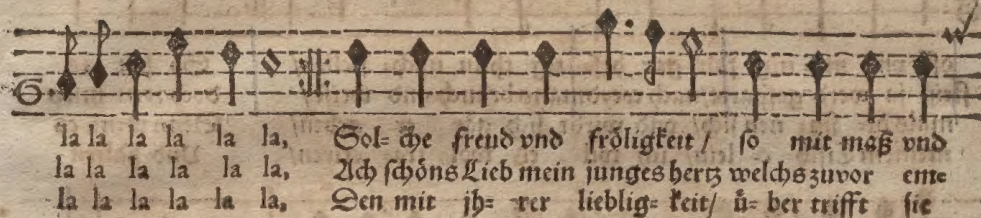 la la la la la la, Sol= che freud vnd fröligkeit / so mit maß vnd
la la la la la la, Ach schöns Lieb mein junges hertz welchs zuvor ent=
la la la la la la, Den mit jh= rer lieblig= keit / ü= ber trifft sie